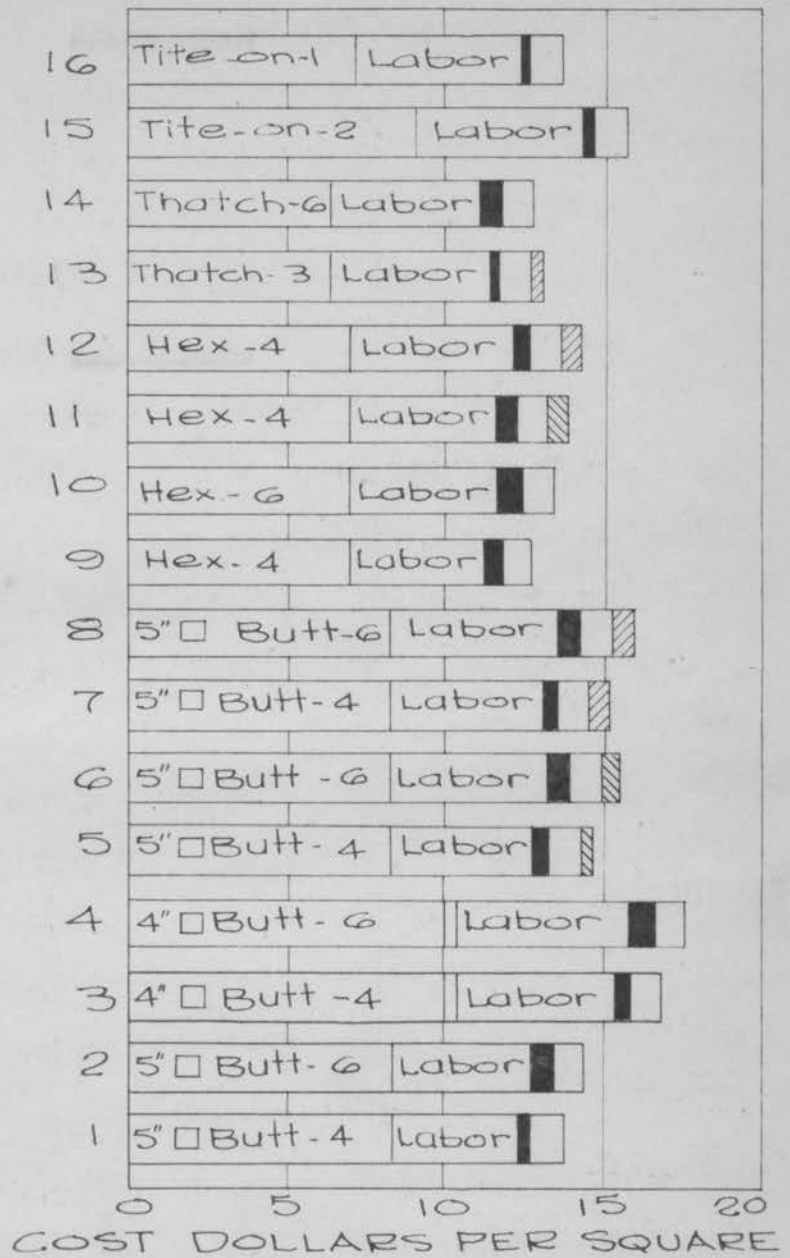 16 Tite-on-1 Labor
15 Tite-on-2 Labor
14 Thatch-6 Labor
13 Thatch-3 Labor
12 Hex-4 Labor
11 Hex-4 Labor
10 Hex-6 Labor
9 Hex-4 Labor
8 5"□ Butt-6 Labor
7 5"□ Butt-4 Labor
6 5"□ Butt-6 Labor
5 5"□ Butt-4 Labor
4 4"□ Butt-6 Labor
3 4"□ Butt-4 Labor
2 5"□ Butt-6 Labor
1 5"□ Butt-4 Labor
0 5 10 15 20
COST DOLLARS PER SQUARE